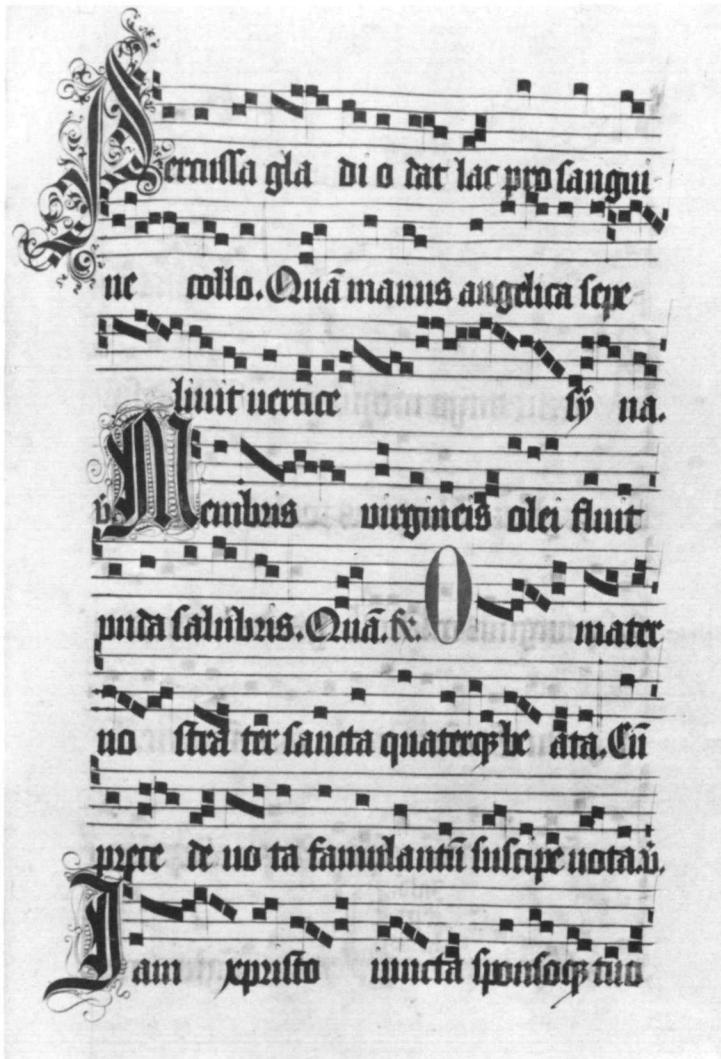 Percussa gla di o dat lac pro sangui-
ne collo. Quā manus angelica sepe-
liuit uertice sȳ na.
v̄. Membris uirgineis olei fluit
unda salubris. Quā. R. O mater
no stra ter sancta quaterqꝫ be ata. Cū
prece de uo ta famulantū suscipe uota. v̄.
Iam xpristo iuncta sponsoqꝫ tuo